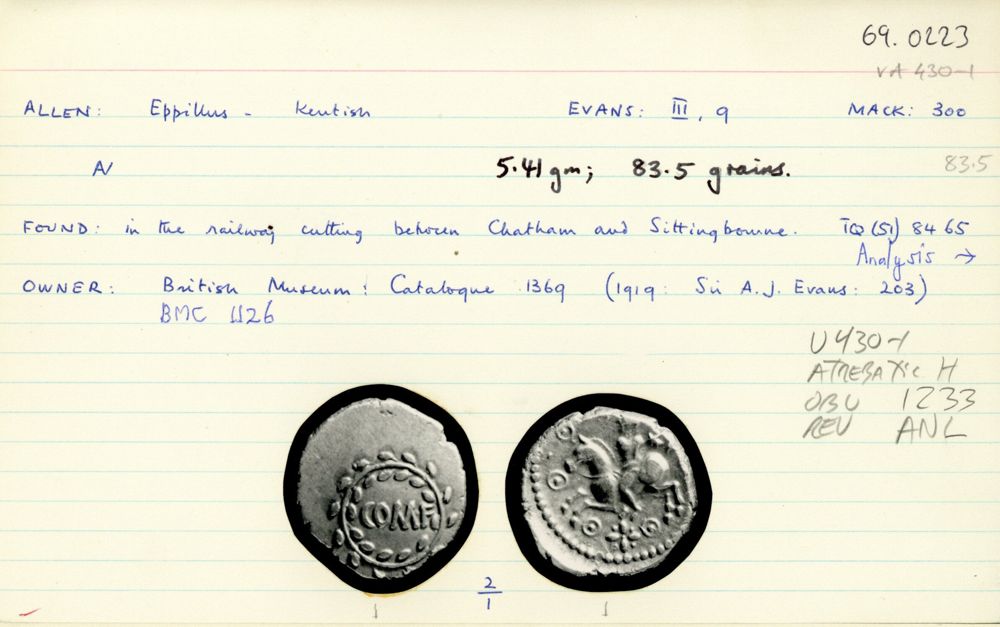 69.0223
VA 430-1
ALLEN: Eppillus - Kentish EVANS: III, 9 MACK: 300
A/ 5.41 gm; 83.5 grains. 83.5
FOUND: in the railway cutting between Chatham and Sittingbourne. TQ (51) 84 65
Analysis →
OWNER: British Museum: Catalogue 1369 (1919: Sir A.J. Evans: 203)
BMC 1126
U430-1
ATREBATIC H
OBV 1233
REV ANL
COMF
2/1